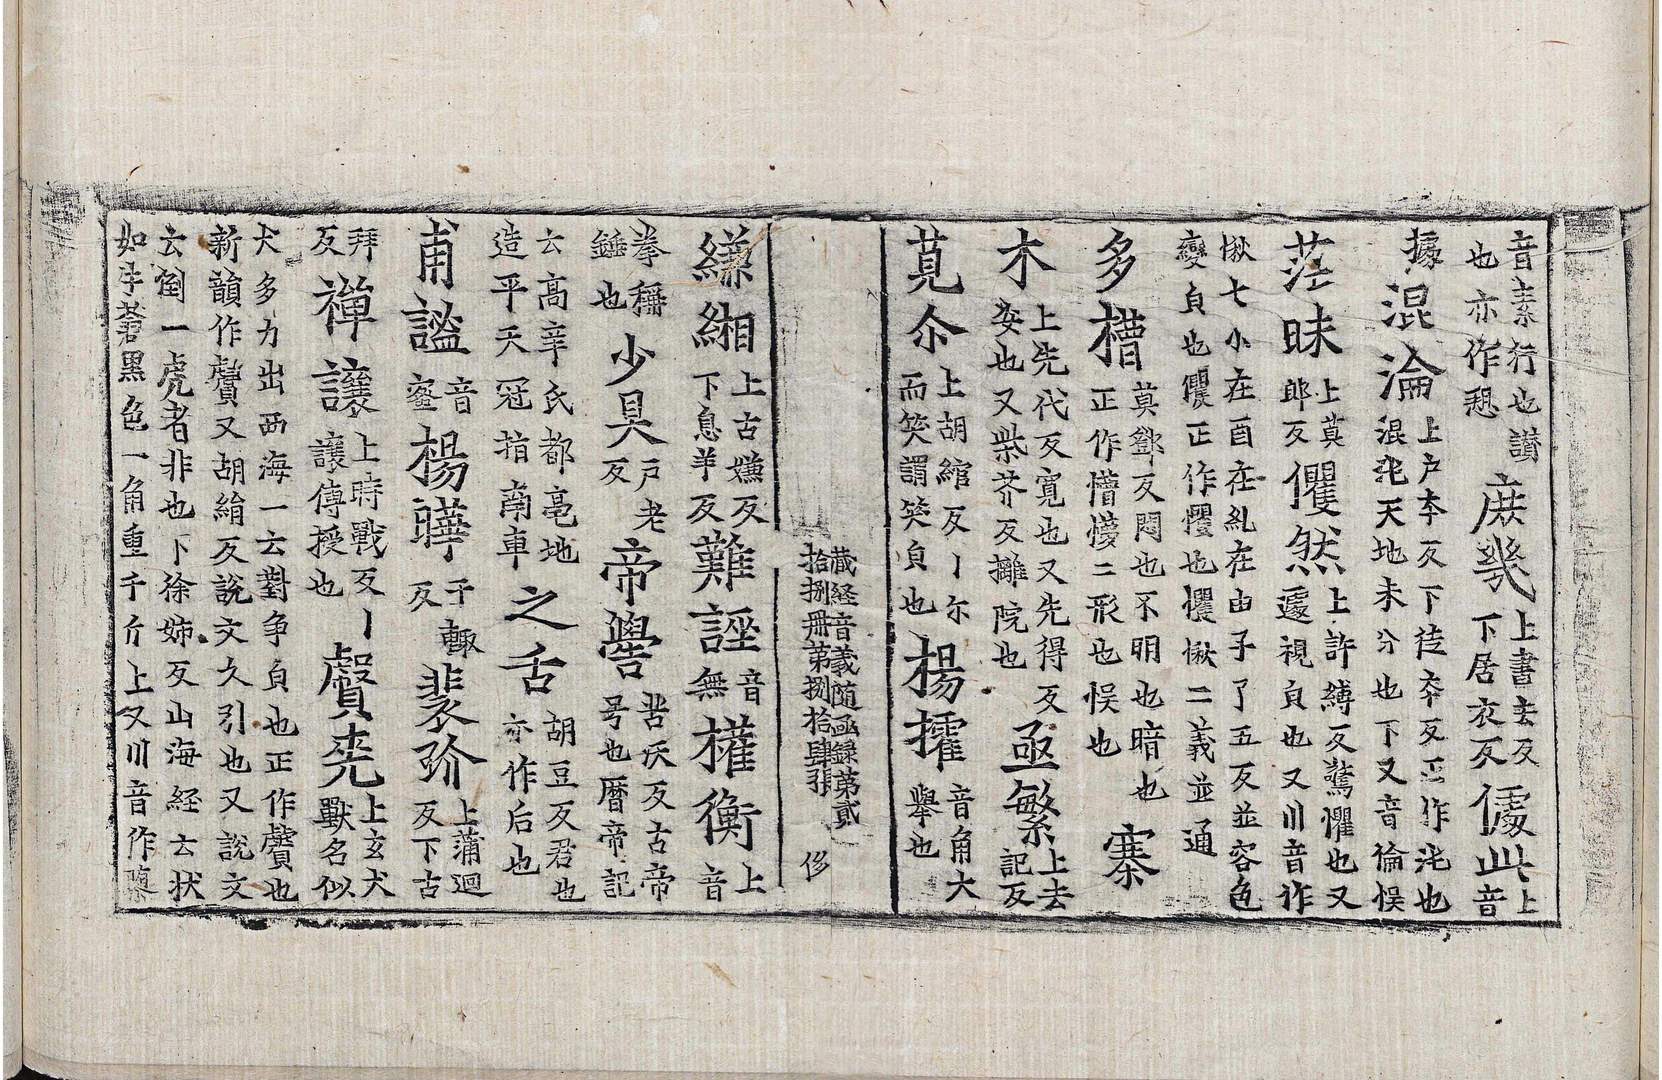 音素行也讃
也亦作㥶
庶幾
上書去反
下居衣反
儓此
上
音
據
混淪
上户夲反下徒夲反正作沌也
混沌天地未分也下又音倫悮
茫昧
上莫
郎反
懼然
上許縛反驚懼也又
遽視㒵也又川音作
愀七小在酉在糺在由子了五反並容色
變㒵也戄正作懼也懼愀二義並通
多懵
莫鄧反悶也不明也暗也
正作懵懜二形也悮也
寨
木
上先代反寛也又先得反
妛也又柴芥反攡院也
亟繁
上去
記反
莧尒
上胡綰反丨尔
而笑謂笑㒵也
楊搉
音角大
舉也
藏経音義随函録第貳
拾捌冊第捌拾肆張
侈
縑緗
上古嫌反
下息羊反
難誣
音
無
權衡
上
音
拳稱
錘也
少昊
户老
反
帝嚳
苦沃反古帝
号也暦帝記
云高辛氏都亳地
造平天冠指南車
之舌
胡豆反君也
亦作后也
甫謐
音
蜜
楊曄
于輙
反
裴玠
上蒲迴
反下古
拜
反
禅讓
上時戰反丨
讓傳授也
贙尭
上玄犬
獸名似
犬多力出西海一云對争㒵也正作贙也
新韻作贙又胡絹反説文久引也又説文
云倒一虎者非也下徐姊反山海経云状
如牛蒼黒色一角重千斤上又川音作䝐